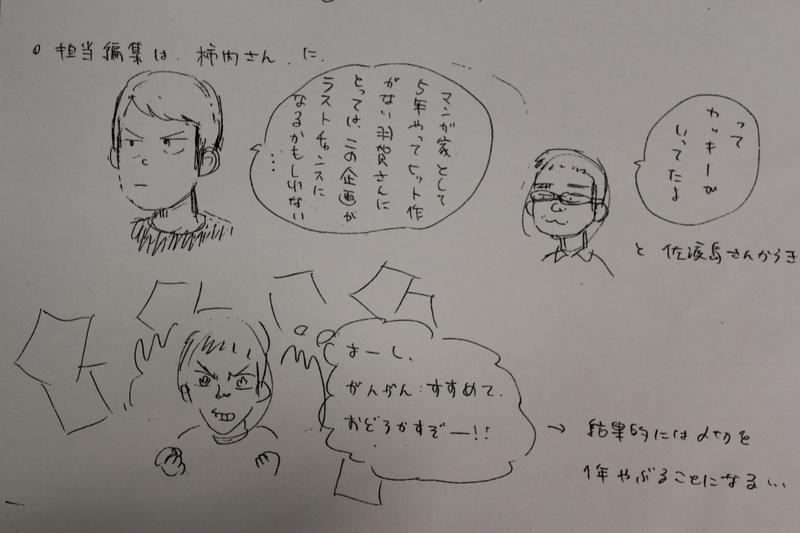 ○ 担当編集は、柿内さん、に、
マンが家として
5年やってヒット作
がない羽賀さんに
とっては、この企画が
ラストチャンスに
なるかもしれない
…
って
カッキーが
いってたよ
と 佐渡島さんからき
よーし、
がんがん、すすめて、
おどろかすぞー!!
→ 結果的には〆切を
1年やぶることになるい…